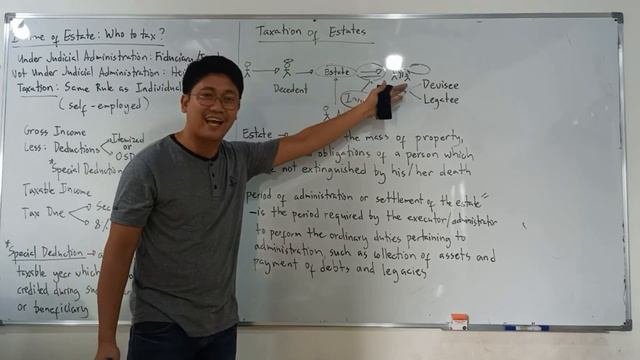 of Estate: Who to tax?
Under Judicial Administration: Fiduciary/
Not Under Judicial Administration:
Taxation: Same Rule as Individual
(self-employed)
Gross Income
Less: Deductions
Itemized
or OSD
*Special Deduction
Taxable Income
Tax Due
8%
*Special Deduction
taxable year which
credited during
or beneficiary
Taxation of Estates
Decedent
Estate
Devisee
Legatee
Estate
the mass of property,
obligations of a person which
not extinguished by his/her death
period of administration or settlement of the estate"
-is the period required by the executor/administrator
to perform the ordinary duties pertaining to
administration, such as collection of assets and
payment of debts and legacies